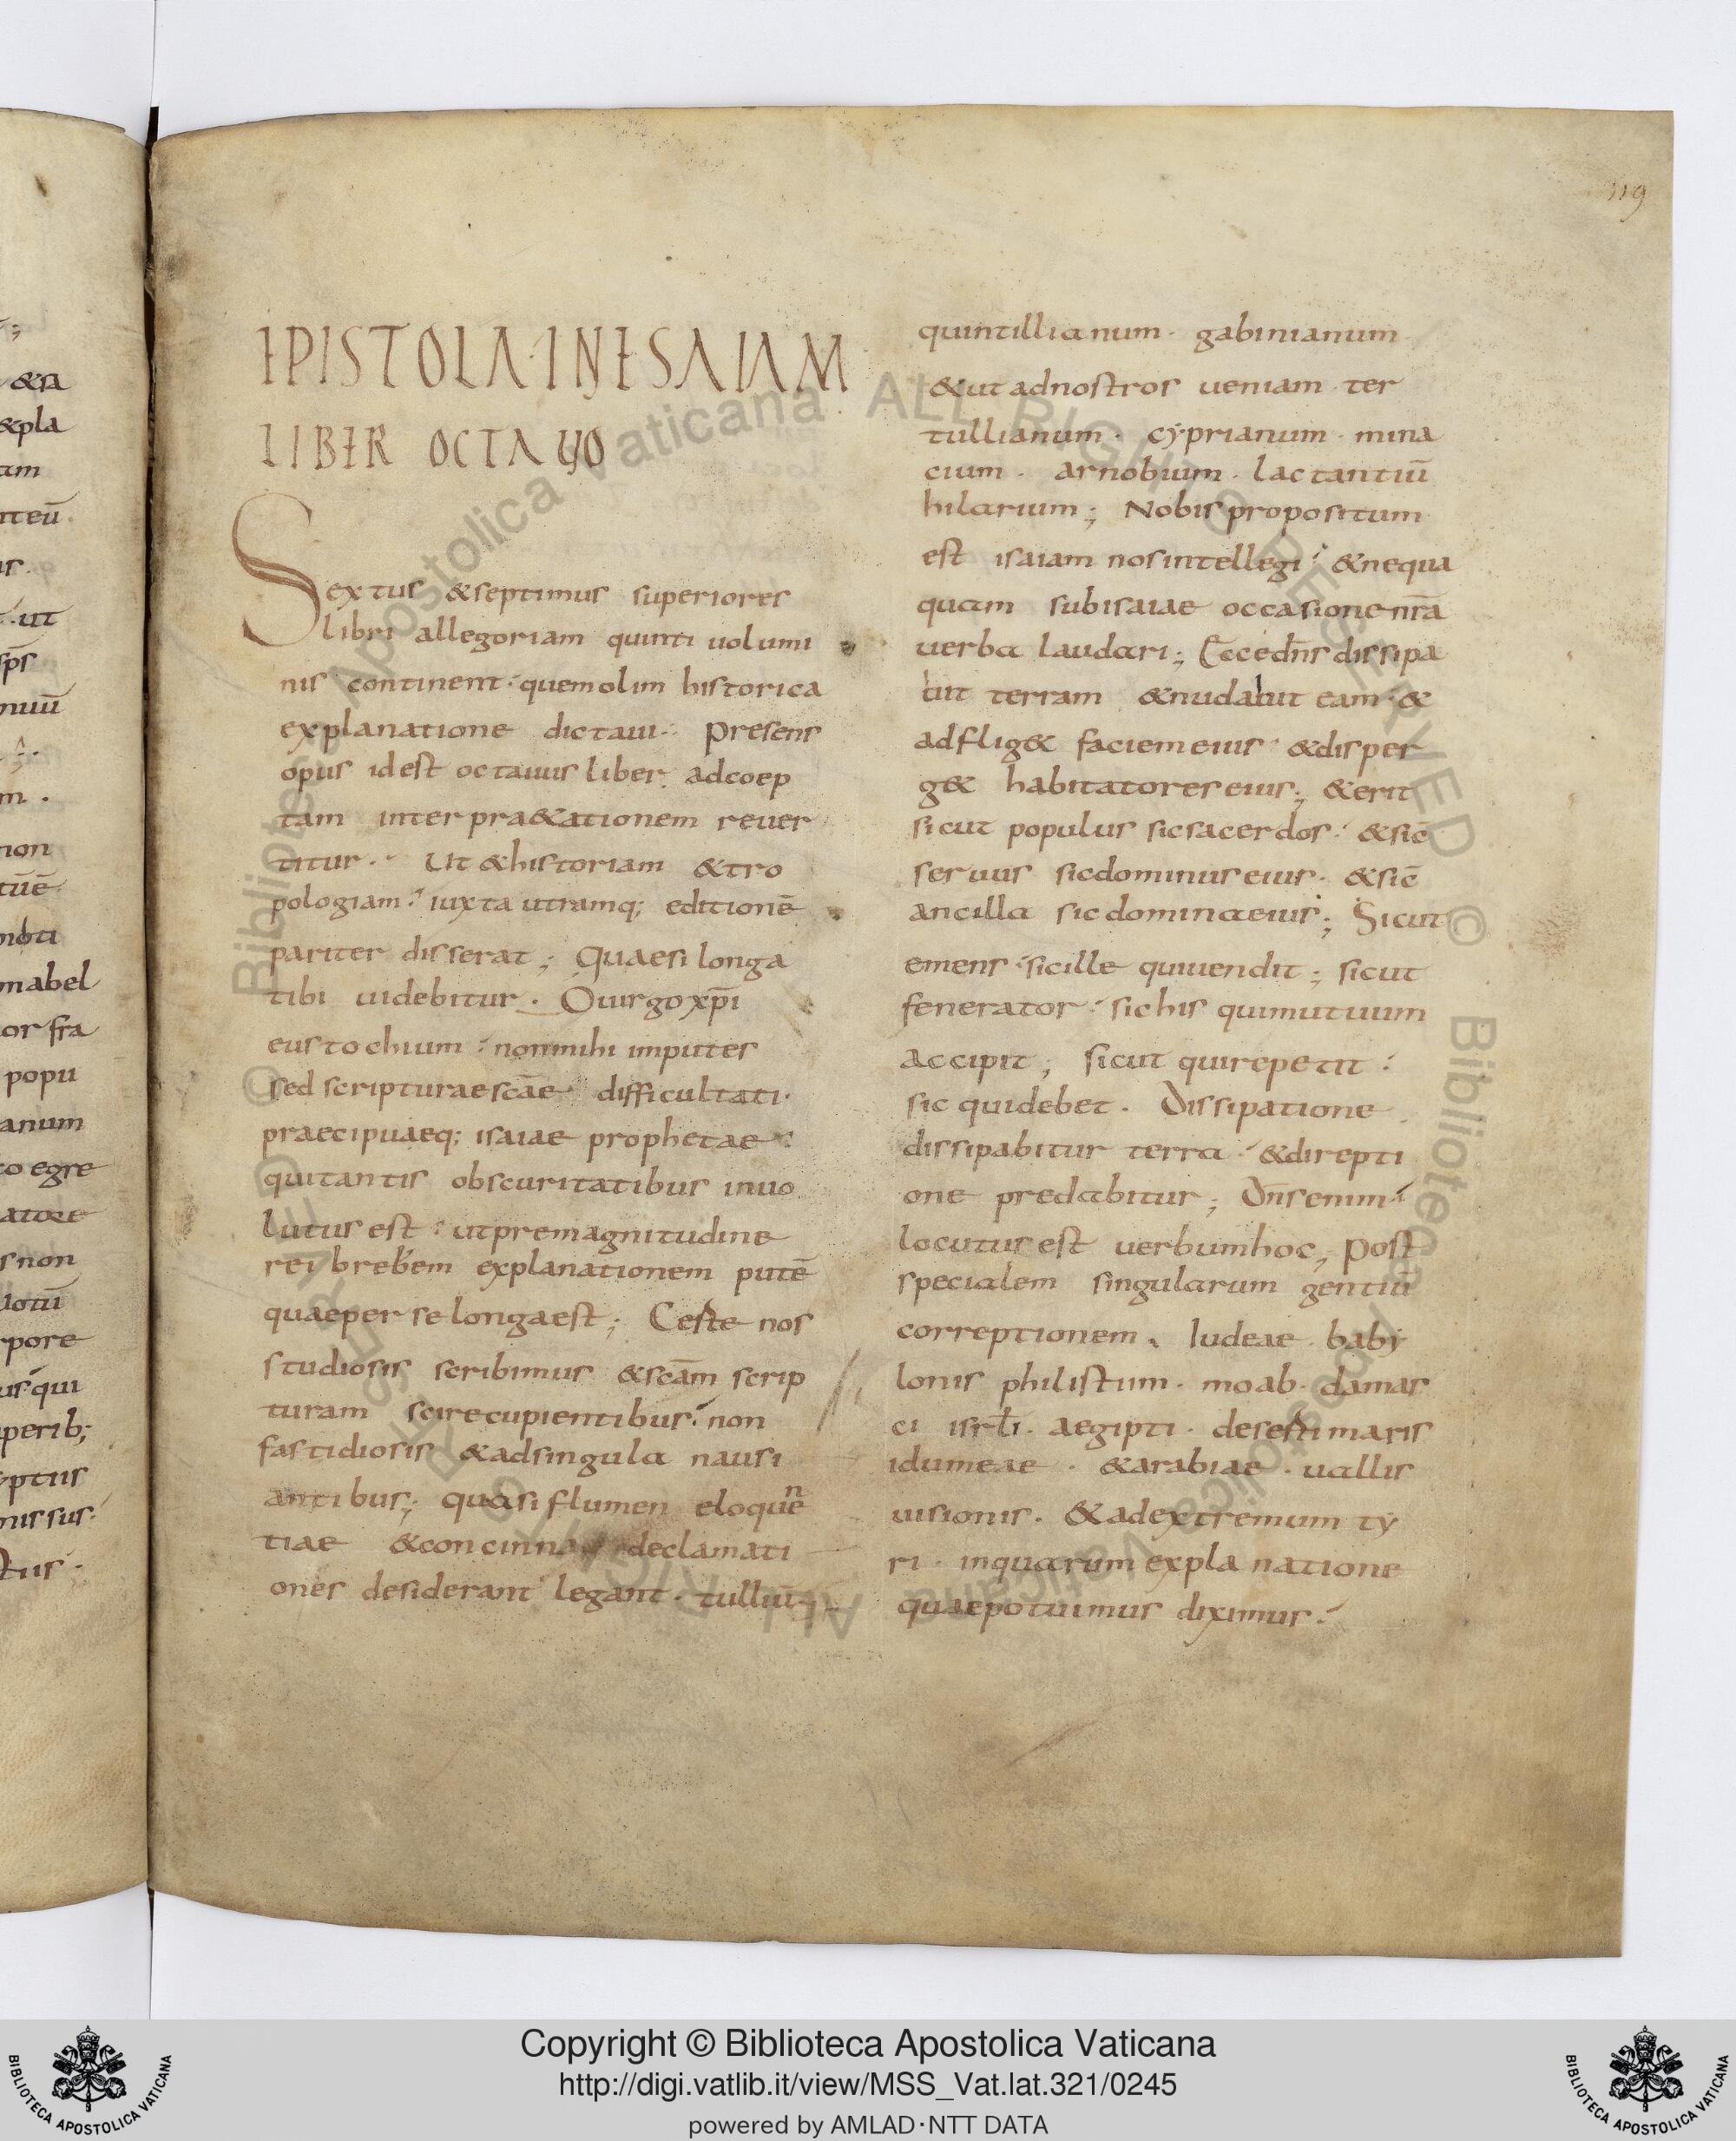 119
EPISTOLA IN ESAIAM
LIBER OCTAVO
Sextus & septimus superiores
libri allegoriam quinti uolumi
nis continent. quem olim historica
explanatione dictaui. Presens
opus id est octauus liber ad coep
tam inter pra&ationem reuer
titur. Ut & historiam & tro
pologiam. iuxta utramq; editionē
pariter disserat; Quae si longa
tibi uidebitur. O uirgo xp̄i
eustochium. non mihi imputes
sed scripturae scāe difficultati.
praecipuaeq; isaiae prophetae.
qui tantis obscuritatibus inuo
lutus est. ut pre magnitudine
rei brebem explanationem putē
quae per se longa est; Certe nos
studiosis scribimus & scām scrip
turam scire cupientibus. non
fastidiosis & ad singula nausi
antibus; qua si flumen eloque
tiae & declamati
ones desiderant legant. tulliū
quintillianum. gabinianum
& ut ad nostros ueniam. ter
tullianum. cyprianum. mina
cium. arnobium. lactantiū
hilarium; Nobis propositum
est isaiam nos intellegi. & nequa
quam sub isaiae occasione nr̄a
uerba laudari; Ecce dn̄s dissipa
bit terram & nudabit eam. &
adflig& faciem eius. & disper
g& habitatores eius; & erit
sicut populus sic sacerdos. & sic̄
seruus sic dominus eius. & sic̄
ancilla sic domina eius; Sicut
emens. sic ille qui uendit; sicut
fenerator. sic his qui mutuum
accipit; sicut qui repetit.
sic qui debet. Dissipatione
dissipabitur terra. & direpti
one predabitur; Dn̄s enim.
locutus est uerbum hoc; Post
specialem singularum gentiū
correptionem. Iudeae. baby
lonis philistiim. moab. damas
ci isrl̄i. aegipti. deserti maris
idumeae. & arabiae. uallis
uisionis. & ad extremum ty
ri. in quarum explanatione
quae potuimus diximus.
Copyright © Biblioteca Apostolica Vaticana
http://digi.vatlib.it/view/MSS_Vat.lat.321/0245
powered by AMLAD·NTT DATA
BIBLIOTECA APOSTOLICA VATICANA
BIBLIOTECA APOSTOLICA VATICANA